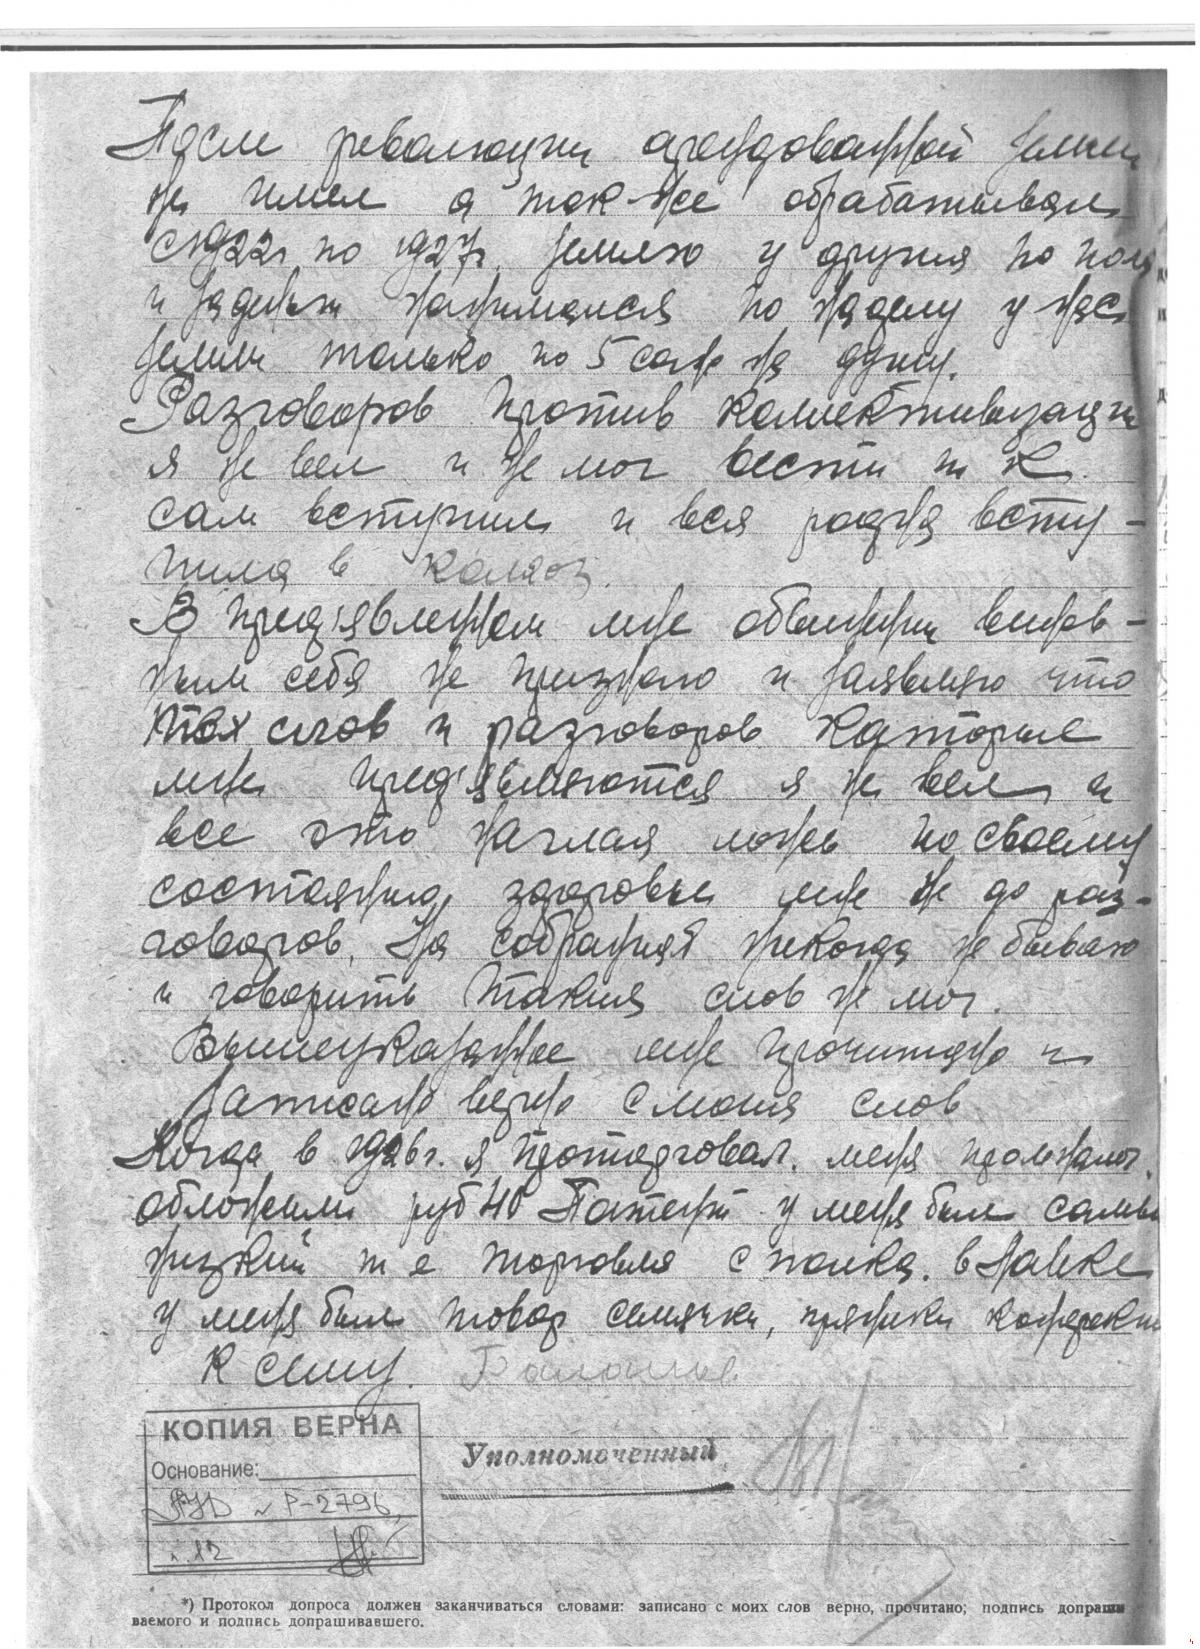 После революции арендованной земли
не имел а так-же обрабатывал
с 1922г. по 1927г. землю у другия по
и наделу у нас
земли только по 5 саж на душу.
Разговоров против коллективизации
я не вел и не мог вести т к
сам вступил и вся родня всту-
пила в колхоз.
В пред'явленом мне обвинении винов-
ным себя не признаю и заявляю что
тех слов и разговоров каторые
мне пред'являются я не вел и
все это наглая ложь по своему
состоянию здоровья мне не до раз-
говоров. На собраниях некогда не бываю
и говорить такия слов не мог.
Вышеуказанное мне прочитано и
записано верно с моия слов
Когда в 1926г. я проторговал. меня
обложили руб 40 Патент у меня был самы
низкий т е торговля с полка. в Палке
у меня был товар семячки, пряники конфекты
К сему.
КОПИЯ ВЕРНА
Основание:
№ Р-2796,
л. 12
Уполномоченный
*) Протокол допроса должен заканчиваться словами: записано с моих слов верно, прочитано; подпись допраши
ваемого и подпись допрашивавшего.